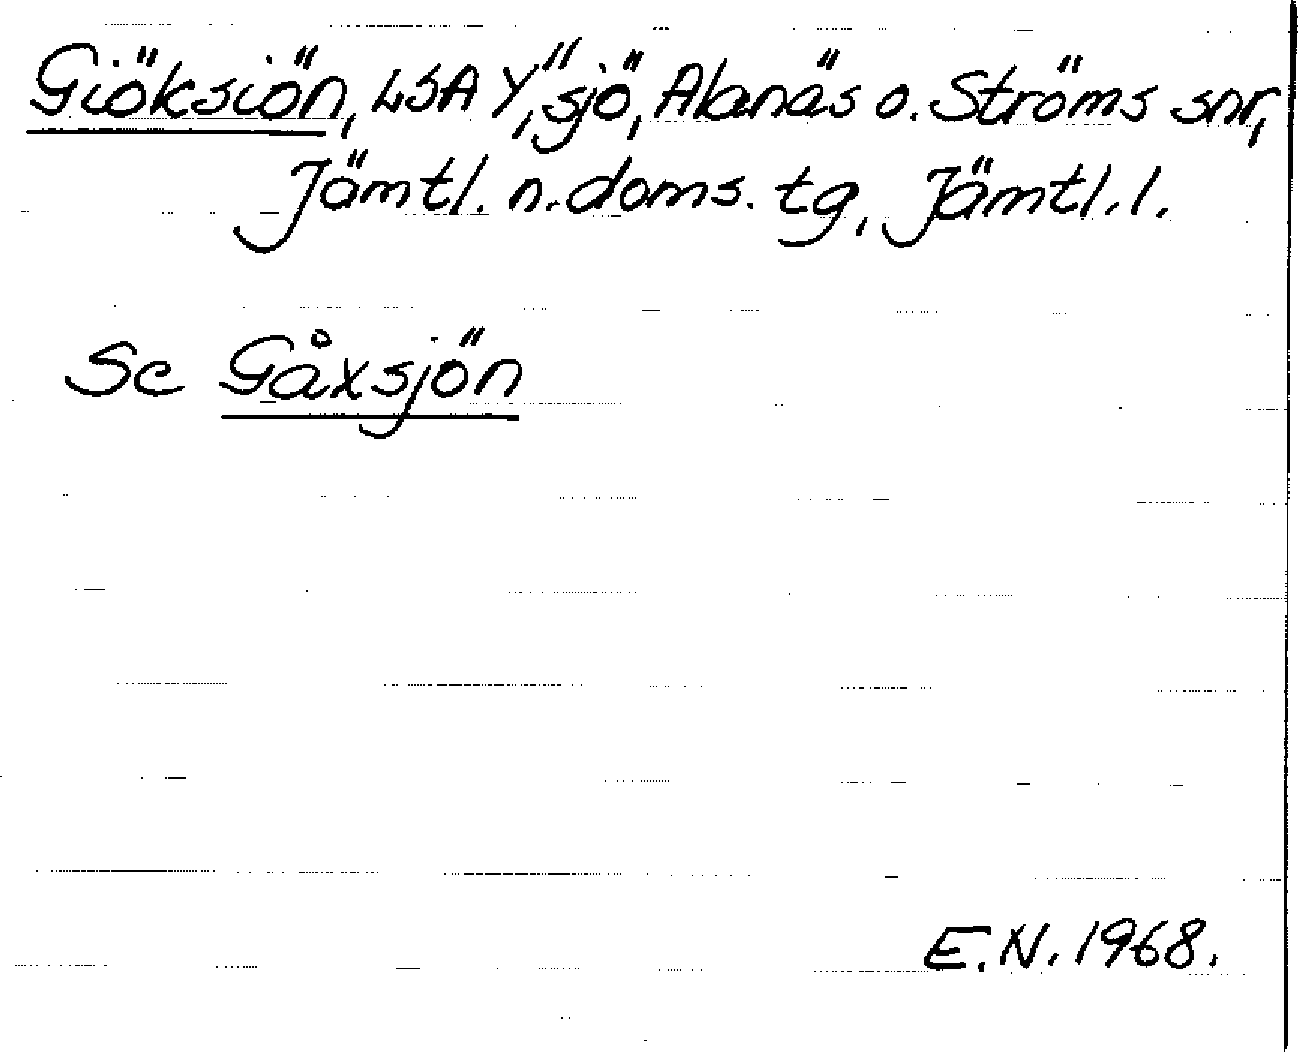 Giöksiön, LSA Y, "sjö", Alanäs o. Ströms snr,
Jämtl. n. doms. tg, Jämtl. l.
Se Gåxsjön
E.N. 1968.